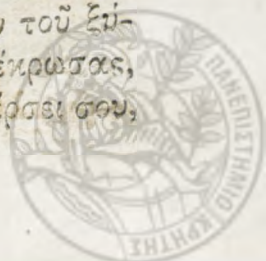 υ τοῦ ξύ-
έκρωσας,
έρσει σου,
ΠΑΝΕΠΙΣΤΗΜΙΟ ΚΡΗΤΗΣ